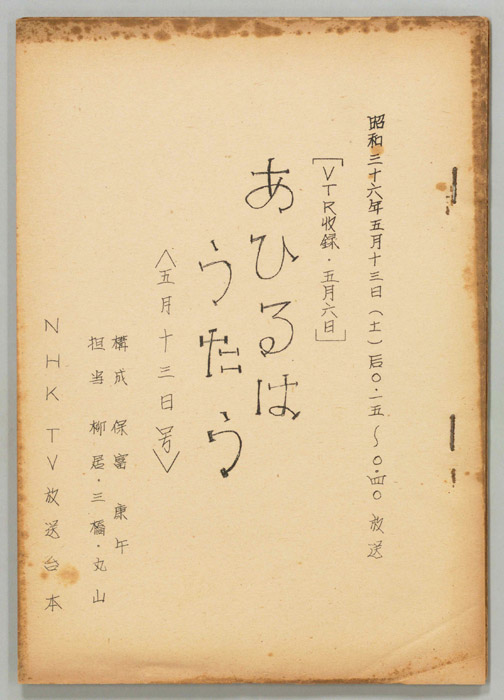 昭和三十六年五月十三日（土）后0.一五〜0.四0 放送
[VTR収録・五月六日]
あひるは
うたう
〈五月十三日号〉
構成 保富 康午
担当 柳居・三橋・丸山
NHK TV放送台本